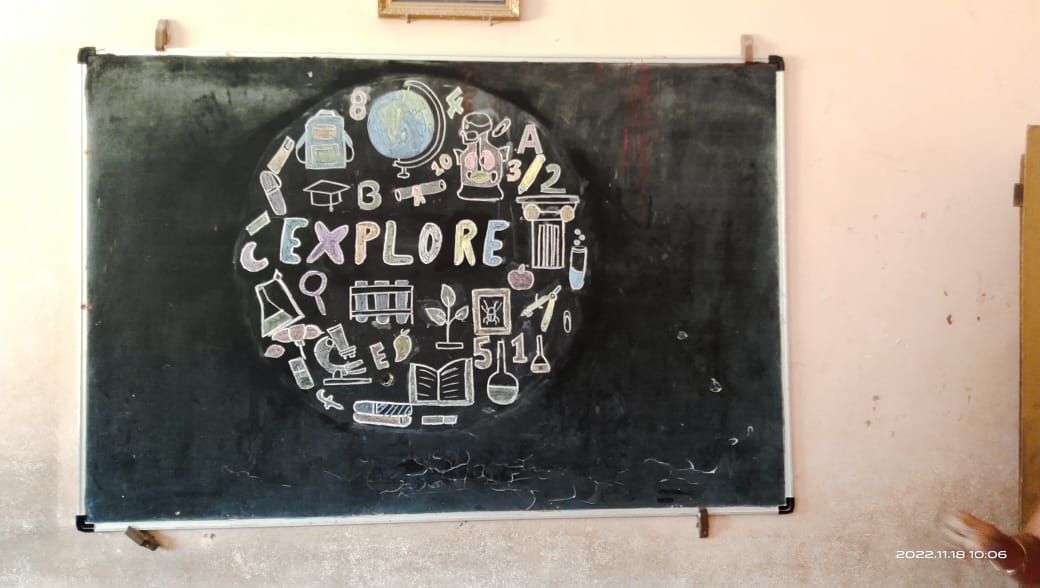 8
A
10
3
2
B
EXPLORE
E
5
1
2022.11.18 10:06